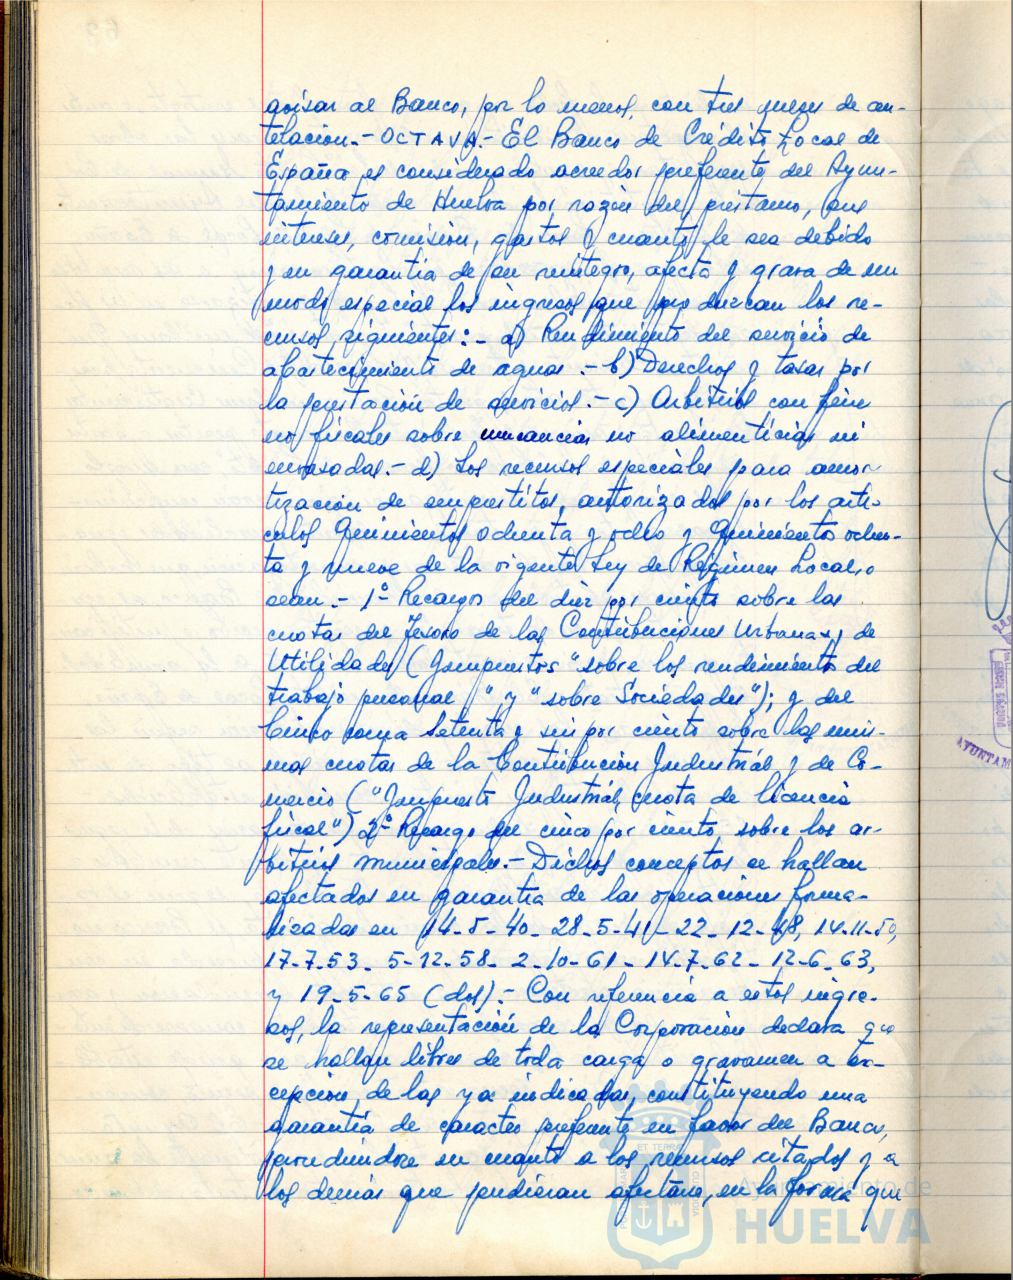 avisar al Banco, por lo menos, con tres meses de an-
telacion.- OCTAVA.- El Banco de Crédito Local de
España es considerado acreedor preferente del Ayun-
tamiento de Huelva por razón del préstamo, sus
intereses, comision, gastos y cuanto le sea debido
y en garantia de su reintegro, afecta y grava de un
modo especial los ingresos que produzcan los re-
cursos siguientes:- a) Rendimiento del servicio de
abastecimiento de aguas.- b) Derechos y tasas por
la prestación de servicios.- c) Arbitrios con fines
no fiscales sobre mercancias no alimenticias ni
envasadas.- d) Los recursos especiales para amor-
tización de empréstitos, autorizados por los artí-
culos Quinientos ochenta y ocho y Quinientos ochen-
ta y nueve de la vigente Ley de Régimen Local, o
sean.- 1º Recargos del diez por ciento sobre las
cuotas del Tesoro de las Contribuciones Urbanas, de
Utilidades (Impuestos "sobre los rendimientos del
trabajo personal" y "sobre Sociedades"); y del
Cinco coma setenta y seis por ciento sobre las mis-
mas cuotas de la Contribucion Industrial y de Co-
mercio ("Impuesto Industrial, cuota de licencia
fiscal") 2º Recargo del cinco por ciento, sobre los ar-
bitrios municipales.- Dichos conceptos se hallan
afectados en garantia de las operaciones forma-
lizadas en 14-5-40- 28-5-41- 22-12-48, 14-11-50,
17-7-53- 5-12-58- 2-10-61- 14-7-62- 12-6-63,
y 19-5-65 (dos).- Con referencia a estos ingre-
sos, la representación de la Corporación declara que
se hallan libres de toda carga o gravamen a ex-
cepcion, de las ya indicadas, constituyendo una
garantia de caracter preferente en favor del Banco,
procediendose en cuanto a los recursos citados y a
los demas que pudieran afectarse, en la forma que
Ayuntamiento de
HUELVA